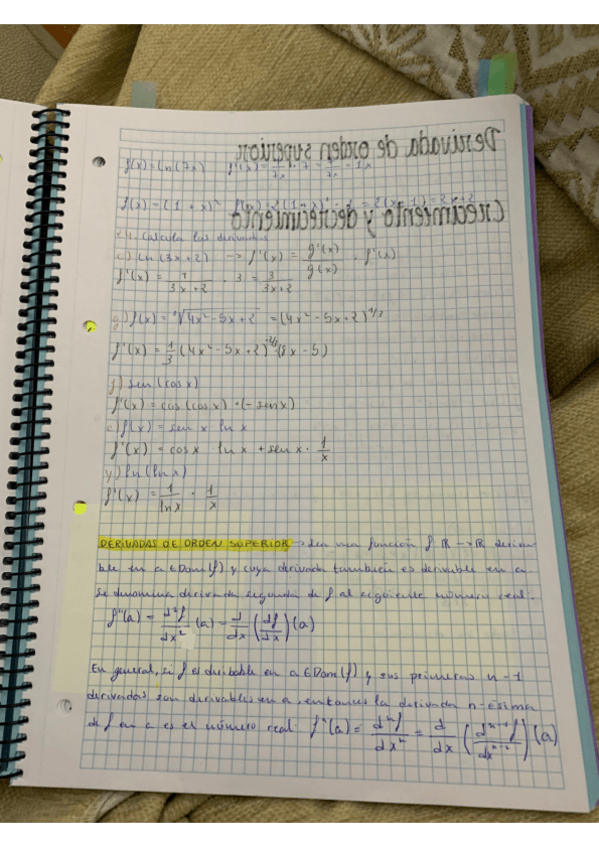 Derivada de orden superior
f(x) = ln(7x) f'(x) = 1/7x · 7 = 7/7x
f(x) = (1 + x)²
Crecimiento y decrecimiento
Calcula las derivadas
ln(3x+2) -> f'(x) = g'(x)/g(x)
f'(x) = 1/3x+2 · 3 = 3/3x+2
f(x) = √4x² - 5x + 2 = (4x² - 5x + 2)^1/3
f'(x) = 1/3 (4x² - 5x + 2)^-2/3 (8x - 5)
j) sen(cos x)
f'(x) = cos(cos x) · (- sen x)
f(x) = sen x · ln x
f'(x) = cos x · ln x + sen x · 1/x
y) ln(ln x)
f'(x) = 1/ln x · 1/x
DERIVADAS DE ORDEN SUPERIOR -> Sea una función f: R -> R, deriva-
ble en a ∈ Dom(f) y cuya derivada también es derivable en a
se denomina derivada segunda de f al siguiente número real:
f''(a) = d²f/dx² (a) = d/dx (df/dx)(a)
En general, si f es en a ∈ Dom(f) y sus primeras n-1
derivadas son derivables en a, entonces la derivada n-ésima
de f en a es el número real: fⁿ(a) = dⁿf/dxⁿ = d/dx (dⁿ⁻¹f/dxⁿ⁻¹)(a)